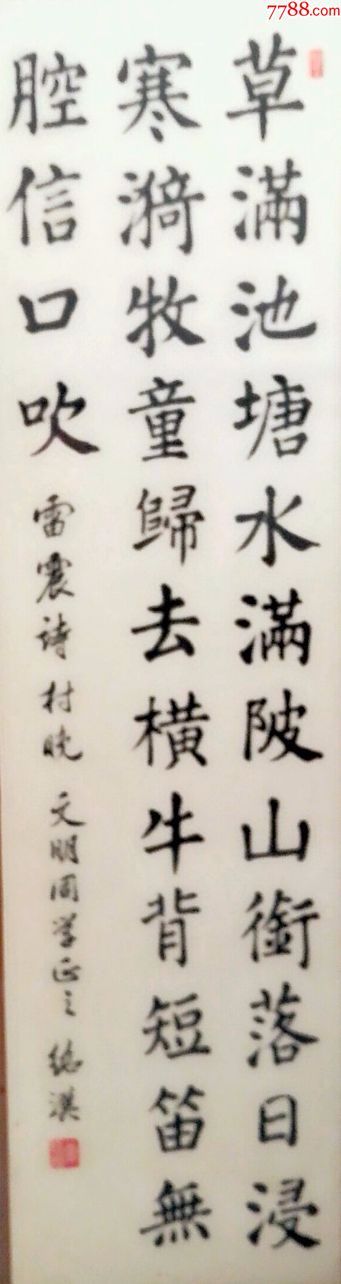 7788.com
草滿池塘水滿陂山銜落日浸
寒漪牧童歸去橫牛背短笛無
腔信口吹
雷震詩村晚 文明同学正之 德漢